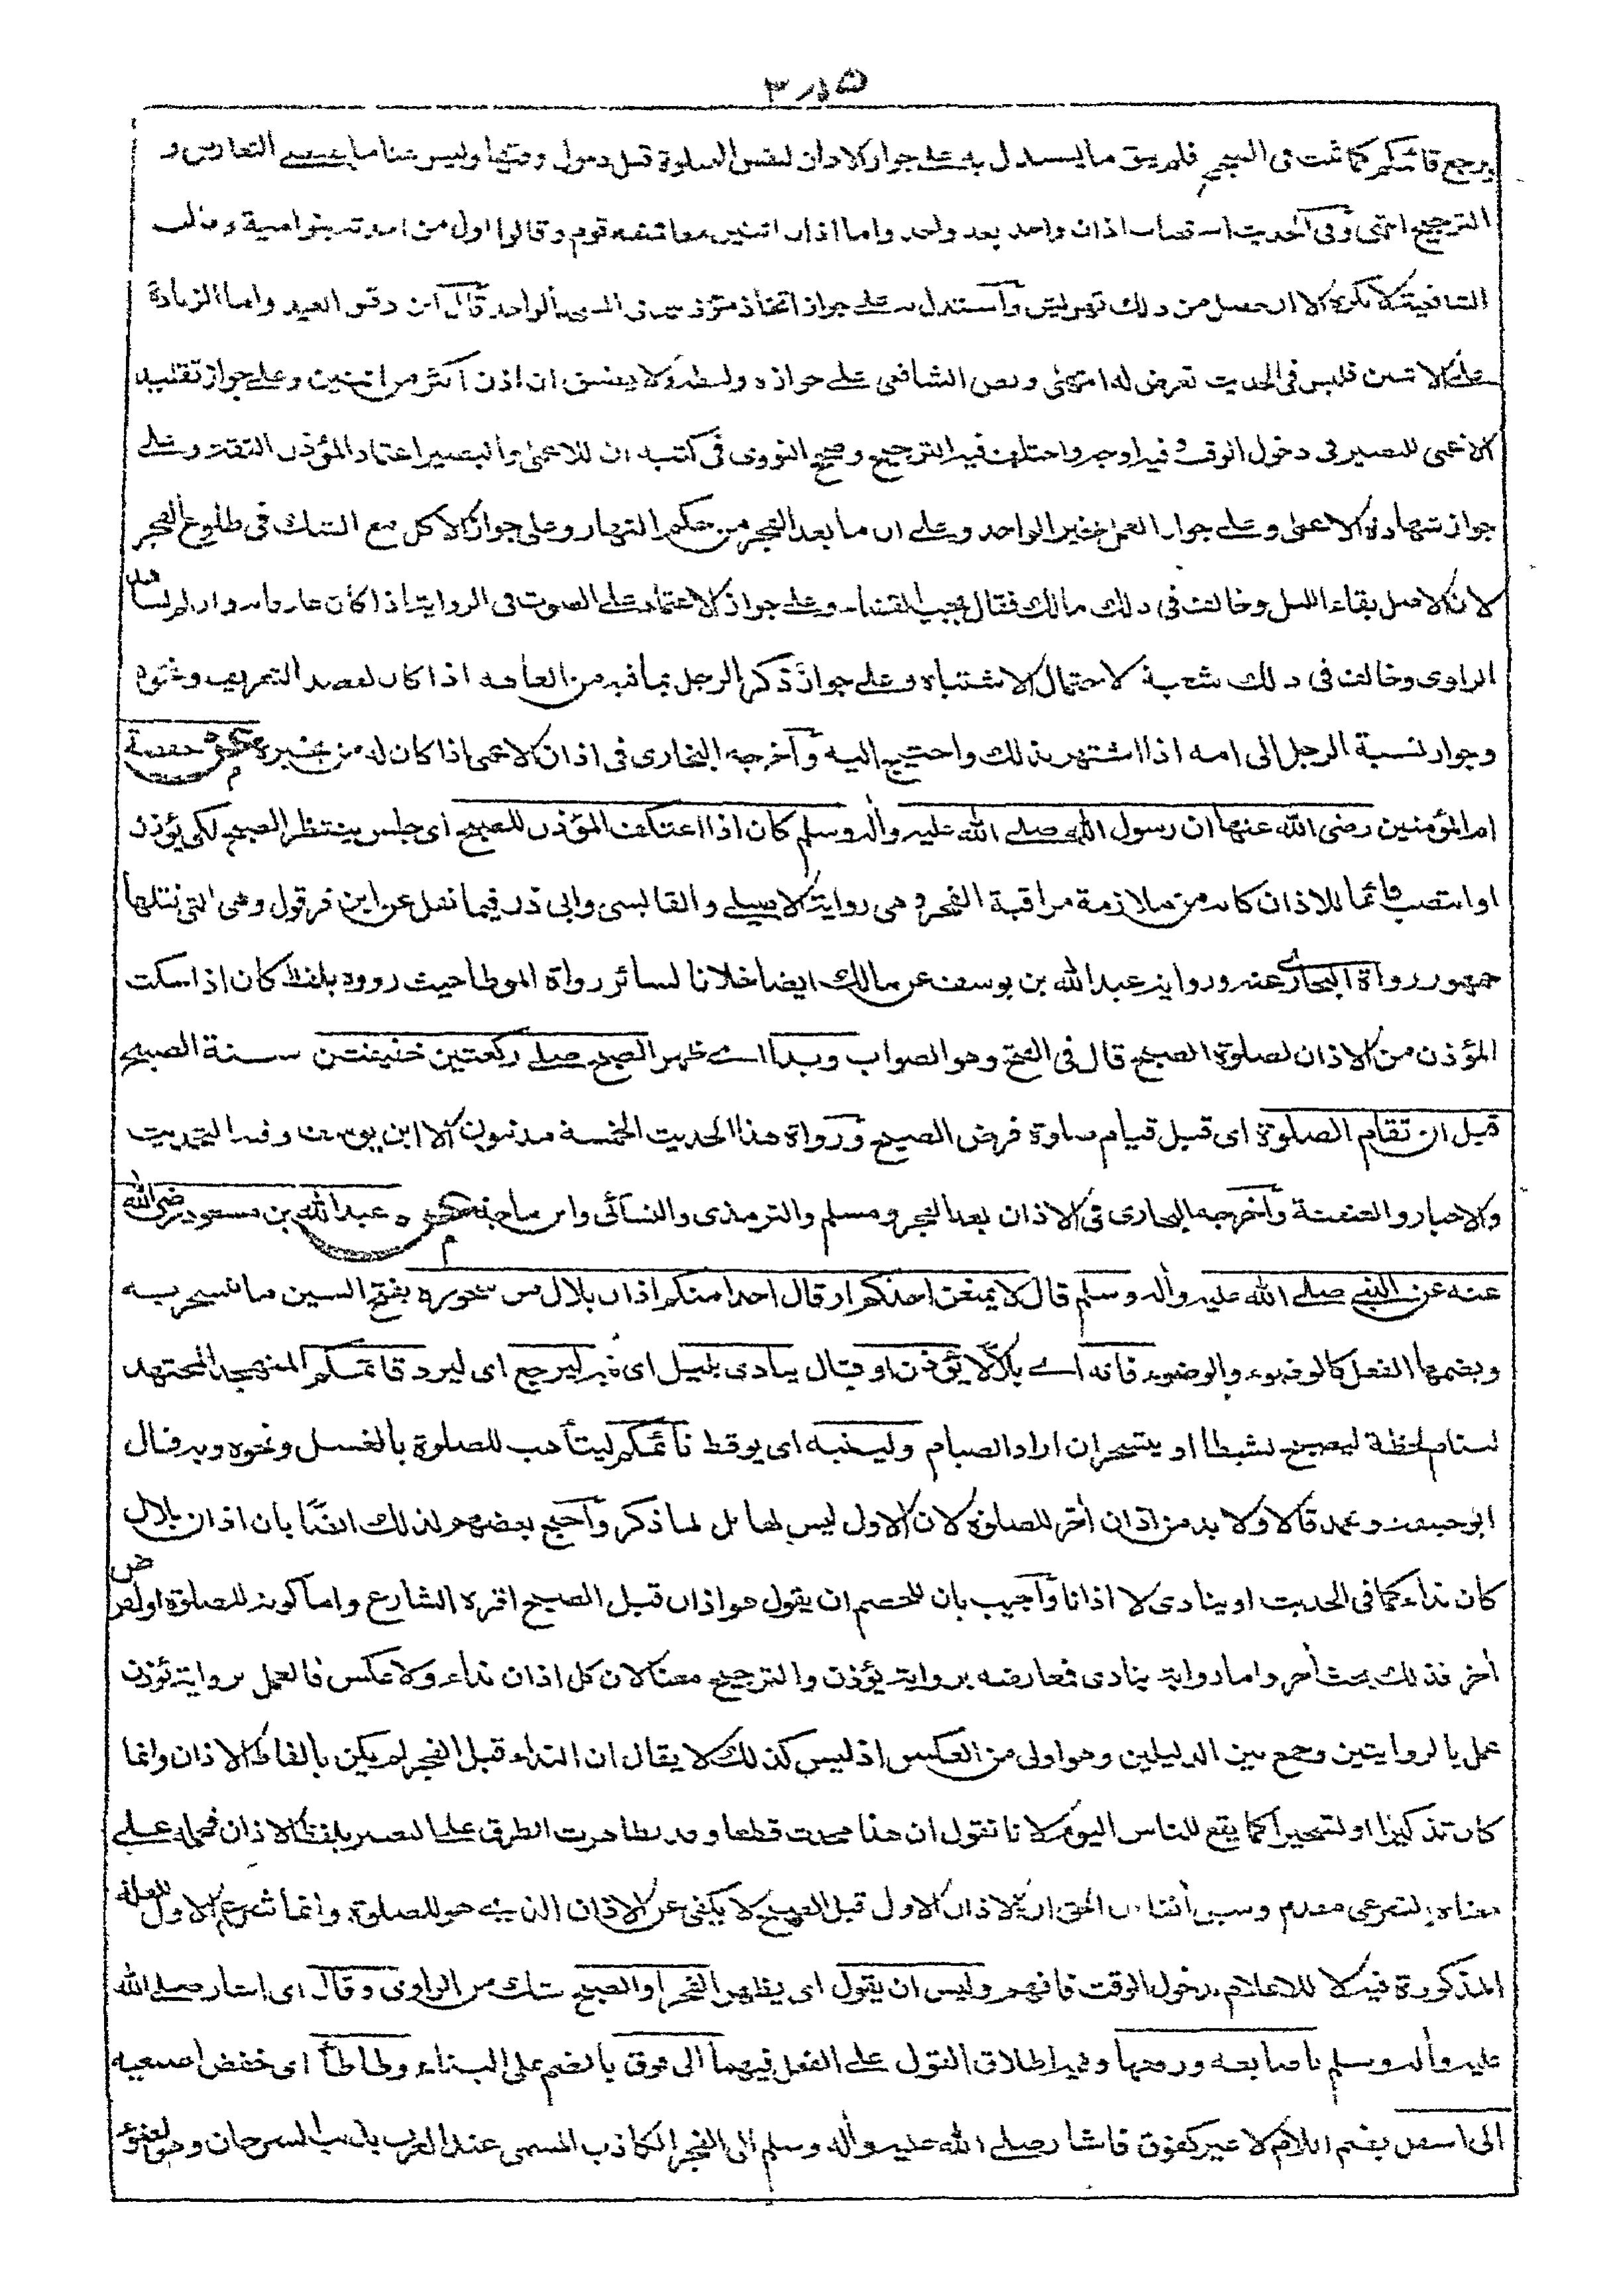 يرجع قائمكم كما ثبت في الصحيح فلم يبق ما يستدل به على جواز الاذان لنفس الصلوة قبل دخول وقتها وليس هنا ما يقتضي التعارض و
الترجيح انتهى وفي الحديث استحباب اذان واحد بعد واحد واما اذان اثنين معا فمنعه قوم وقالوا اول من احدثه بنو امية وقالت
الشافعية لا يكره الا ان حصل من ذلك تهويش وأستدل به على جواز اتخاذ مؤذنين في المسجد الواحد قال ابن دقيق العيد واما الزيادة
على الاثنين فليس في الحديث تعرض له انتهى ونص الشافعي على جوازه ولفظه ولا يضيق ان اذن اكثر من اثنين وعلى جواز تقليد
الاعمى للبصير في دخول الوقت وفيه اوجه واختلف فيه الترجيح وصحح النووي في كتبه ان للاعمى والبصير اعتماد المؤذن الثقة وعلى
جواز شهادة الاعمى وعلى جواز العمل بخبر الواحد وعلى ان ما بعد الفجر من حكم النهار وعلى جواز الاكل مع الشك في طلوع الفجر
لان الاصل بقاء الليل وخالف في ذلك مالك فقال يجب القضاء وعلى جواز الاعتماد على الصوت في الرواية اذا كان عارفا به وان لم يشاهد
الراوي وخالف في ذلك شعبة لاحتمال الاشتباه وعلى جواز ذكر الرجل بما فيه من العاهة اذا كان لقصد التعريف ونحوه
وجواز نسبة الرجل الى امه اذا اشتهر بذلك واحتيج اليه وأخرجه البخاري في اذان الاعمى اذا كان له من يخبره عن حفصة
ام المؤمنين رضي الله عنها ان رسول الله صلى الله عليه وأله وسلم كان اذا اعتكف المؤذن للصبح اي جلس ينتظر الصبح لكي يؤذن
او انتصب قائما للاذان كانه من ملازمة مراقبة الفجر وهي رواية الاصيلي والقابسي وابي ذر فيما نقل عن ابن قرقول وهي التي نقلها
جمهور رواة البخاري عنه ورواية عبد الله بن يوسف عن مالك ايضا خلافا لسائر رواة الموطا حيث رووه بلفظ كان اذا سكت
المؤذن من الاذان لصلوة الصبح قال في الفتح وهو الصواب وبدا اي ظهر الصبح صلى ركعتين خفيفتين سنة الصبح
قبل ان تقام الصلوة اي قبل قيام صلوة فرض الصبح ورواة هذا الحديث الخمسة مدنيون الا ابن يوسف وفيه التحديث
والاخبار والعنعنة وأخرجه البخاري في الاذان بعد الفجر ومسلم والترمذي والنسائي وابن ماجه عن عبد الله بن مسعود رضي الله
عنه عن النبي صلى الله عليه وأله وسلم قال لا يمنعن احدكم او قال احدا منكم اذان بلال من سحوره بفتح السين ما يتسحر به
وبضمها الفعل كالوضوء والوضوء فانه اي بلالا يؤذن او قال ينادي بليل اي فيه ليرجع اي ليرد قائمكم المتهجد المجتهد
لينام لحظة ليصبح نشيطا او يتسحر ان اراد الصيام ولينبه اي يوقظ نائمكم ليتأهب للصلوة بالغسل ونحوه وبه قال
ابو حنيفة ومحمد قالا ولا بد من اذان أخر للصلوة لان الاول ليس لها بل لما ذكر وأحتج بعضهم لذلك ايضا بان اذان بلال
كان نداء كما في الحديث او ينادي لا اذانا وأجيب بان للخصم ان يقول هو اذان قبل الصبح اقره الشارع واما كونه للصلوة او لغرض
أخر فذلك بحث أخر واما رواية ينادي فمعارضة برواية يؤذن والترجيح معنا لان كل اذان نداء ولا عكس فالعمل برواية يؤذن
عمل بالروايتين وجمع بين الدليلين وهو اولى من العكس اذ ليس كذلك لا يقال ان النداء قبل الفجر لم يكن بالفاظ الاذان وانما
كان تذكيرا او تسحيرا كما يقع للناس اليوم لانا نقول ان هذا محدث قطعا وقد تظاهرت الطرق على التعبير بلفظ الاذان فحمله على
معناه الشرعي مقدم الاذان الاول قبل الصبح لا يكفي عن الاذان الذي هو للصلوة وانما شرع الاول للعلة
المذكورة فيه لا للاعلام بدخول الوقت فافهم وليس ان يقول اي يظهر الفجر او الصبح شك من الراوي وقال اي اشار صلى الله
عليه وأله وسلم باصابعه ورفعها وفيه اطلاق القول على الفعل فيهما الى فوق بالضم على البناء وطاطأ اي خفض اصبعيه
الى اسفل بضم اللام لا غير كفوق فاشار صلى الله عليه وأله وسلم الى الفجر الكاذب المسمى عند العرب بذنب السرحان وهو